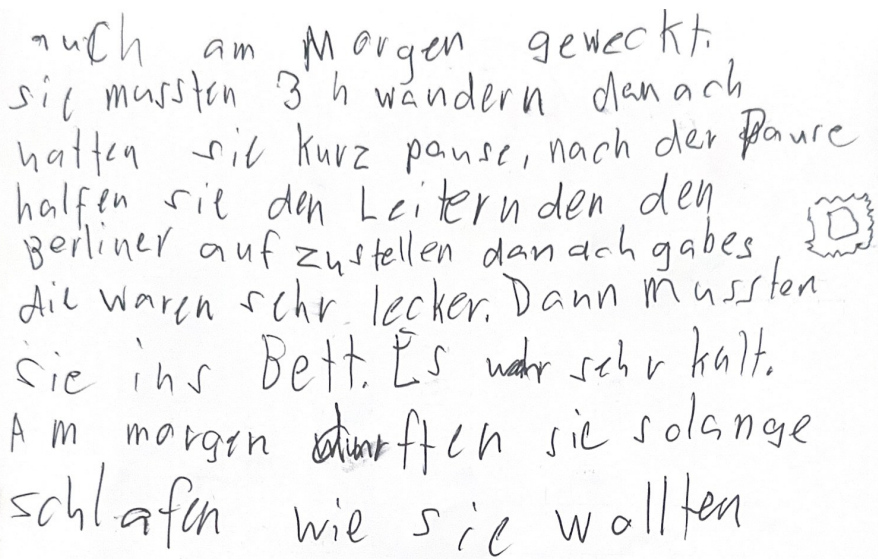 auch am Morgen geweckt.
sie mussten 3 h wandern danach
hatten sie kurz pause, nach der Pause
halfen sie den Leitern den den
Berliner auf zustellen danach gabes D
die waren sehr lecker. Dann mussten
sie ins Bett. Es wahr sehr kalt.
Am morgen durften sie solange
schlafen wie sie wollten